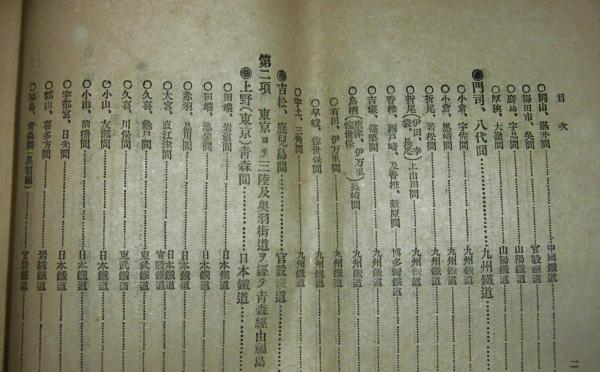 目次
○岡山、湊井間 中國鐵道
○海田市、吳間 官設鐵道
○嚴島、宇品間 山陽鐵道
○厚狹、大嶺間 山陽鐵道
◉門司、八代間 九州鐵道
○小倉、宇佐間 九州鐵道
○小倉、黑崎間 九州鐵道
○折尾、若松間 九州鐵道
○折尾 伊田、幸袋、長尾 上山田間 九州鐵道
○香椎、西戶崎、及香椎、新原間 博多灣鐵道
○吉塚、篠栗間 九州鐵道
○鳥栖 長崎間 九州鐵道
○有田、伊万里間 九州鐵道
○早岐、佐世保間 九州鐵道
○宇土、三角間 九州鐵道
◉吉松、鹿兒島間 官設鐵道
第二項 東京ヨリ三陸及奧羽街道ヲ經テ青森經由福島
◉上野(東京)青森間 日本鐵道
○田端、岩沼間 日本鐵道
○田端、池袋間 日本鐵道
○赤羽、品川間 日本鐵道
○大宮、直江津間 日本鐵道 官設鐵道
○久喜、龜戶間 東武鐵道
○久喜、川俣間 東武鐵道
○小山、友部間 日本鐵道
○小山、前橋間 日本鐵道
○宇都宮、日光間 日本鐵道
○郡山、喜多方間 岩越鐵道
○福島、青森間 官設鐵道
二